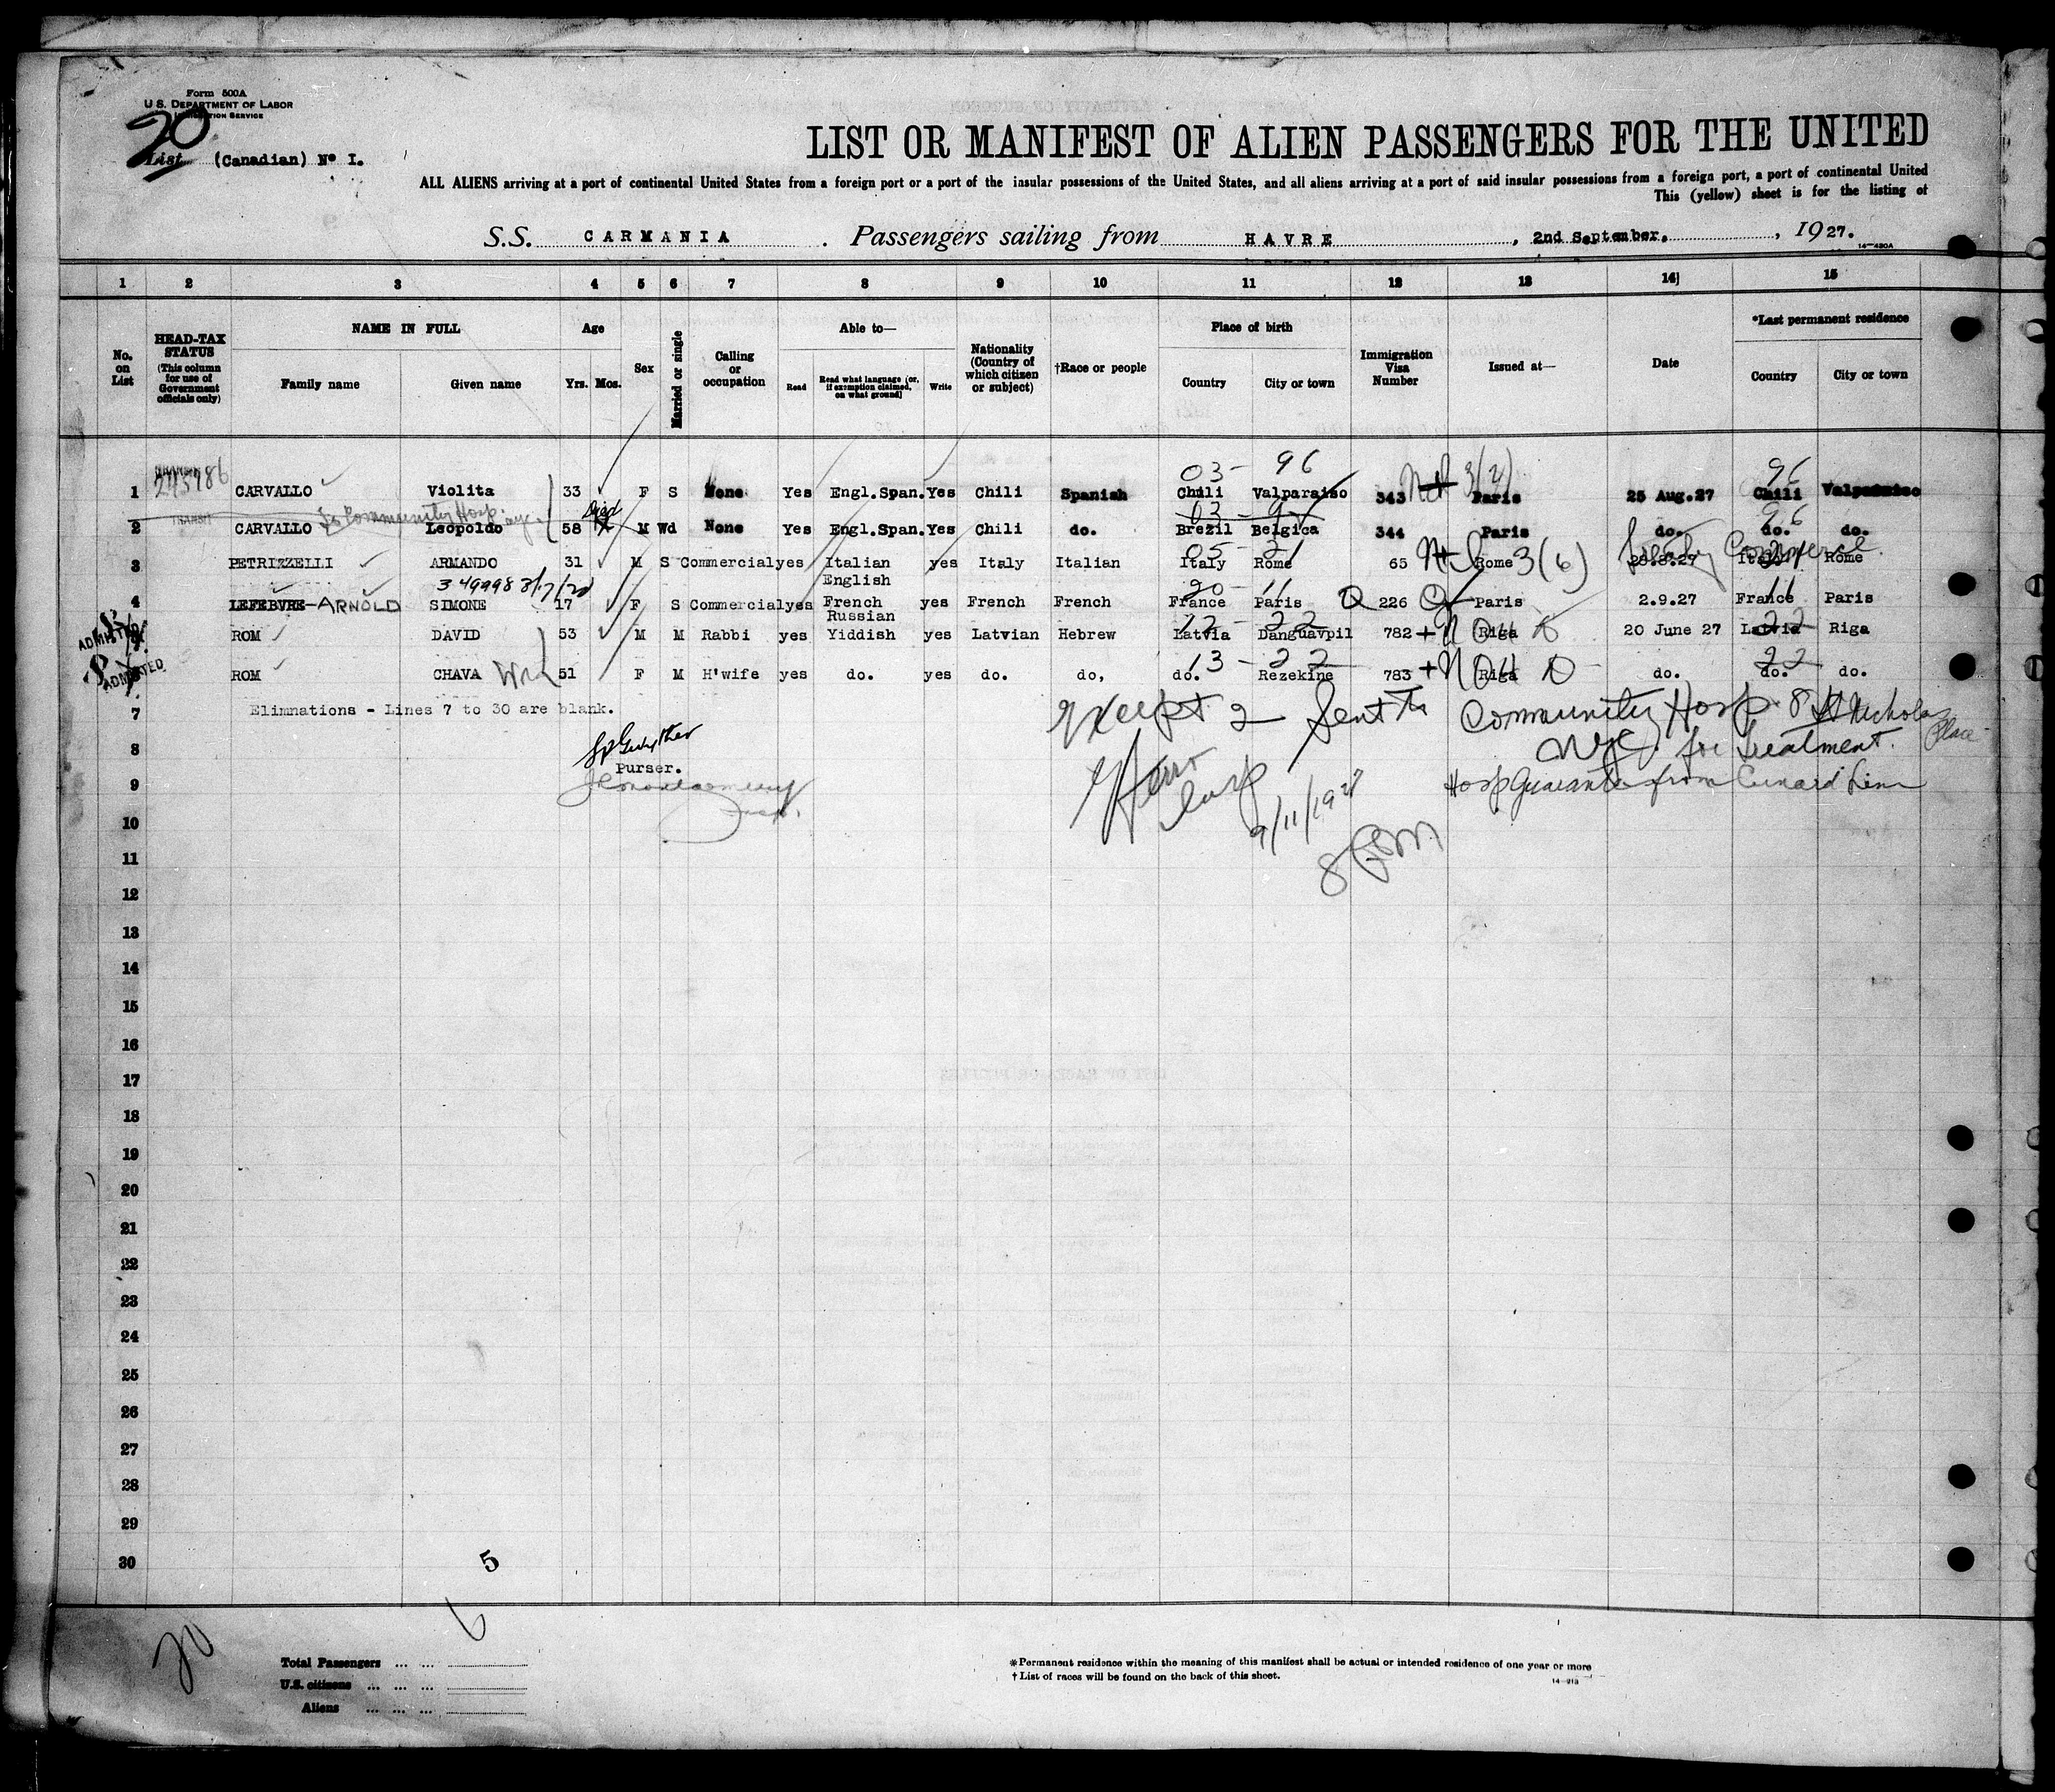 Form 500A
U.S. DEPARTMENT OF LABOR
IMMIGRATION SERVICE
20
List (Canadian) Nº I.
LIST OR MANIFEST OF ALIEN PASSENGERS FOR THE UNITED
ALL ALIENS arriving at a port of continental United States from a foreign port or a port of the insular possessions of the United States, and all aliens arriving at a port of said insular possessions from a foreign port, a port of continental United
This (yellow) sheet is for the listing of
S.S. CARMANIA . Passengers sailing from HAVRE , 2nd September. , 1927.
14—430A
1 2 3 4 5 6 7 8 9 10 11 12 13 14 15
No. on List
HEAD-TAX STATUS (This column for use of Government officials only)
NAME IN FULL
Family name Given name
Age
Yrs. Mos.
Sex
Married or single
Calling or occupation
Able to—
Read Read what language (or, if exemption claimed, on what ground) Write
Nationality (Country of which citizen or subject)
†Race or people
Place of birth
Country City or town
Immigration Visa Number
Issued at—
Date
*Last permanent residence
Country City or town
03- 96 3(2) 96
1 CARVALLO Violita 33 F S None Yes Engl.Span. Yes Chili Spanish Chili Valparaiso 343 Paris 25 Aug.27 Chili Valparaiso
TRANSIT To Community Hosp. Died 03 96
2 CARVALLO Leopoldo 58 M Wd None Yes Engl.Span. Yes Chili do. Brezil Belgica 344 Paris do. do. do.
05- 21 3(6)
3 PETRIZZELLI ARMANDO 31 M S Commercial yes Italian yes Italy Italian Italy Rome 65 Rome Italy Rome
English
349998 3/17/28 20- 11 Q 11
4 LEFEBVRE-ARNOLD SIMONE 17 F S Commercial yes French yes French French France Paris 226 Paris 2.9.27 France Paris
Russian
22 22
ADMITTED ROM DAVID 53 M M Rabbi yes Yiddish yes Latvian Hebrew Latvia Danguavpil 782 Riga 20 June 27 Latvia Riga
13-22 22
ADMITTED ROM CHAVA 51 F M H'wife yes do. yes do. do, do. Rezekine 783 Riga do. do. do.
7 Elimnations - Lines 7 to 30 are blank.
Except 2 Sent to Community Hosp. 8 St Nicholas Place
8 NYC. for treatment.
Purser.
9 Hosp Guarantee from Cunard Line
Insp.
9/11/1927
10
11
12
13
14
15
16
17
18
19
20
21
22
23
24
25
26
27
28
29
30
5
6
20
Total Passengers ... ...
U.S. citizens ... ... ...
Aliens ... ... ...
*Permanent residence within the meaning of this manifest shall be actual or intended residence of one year or more
†List of races will be found on the back of this sheet.
14—913